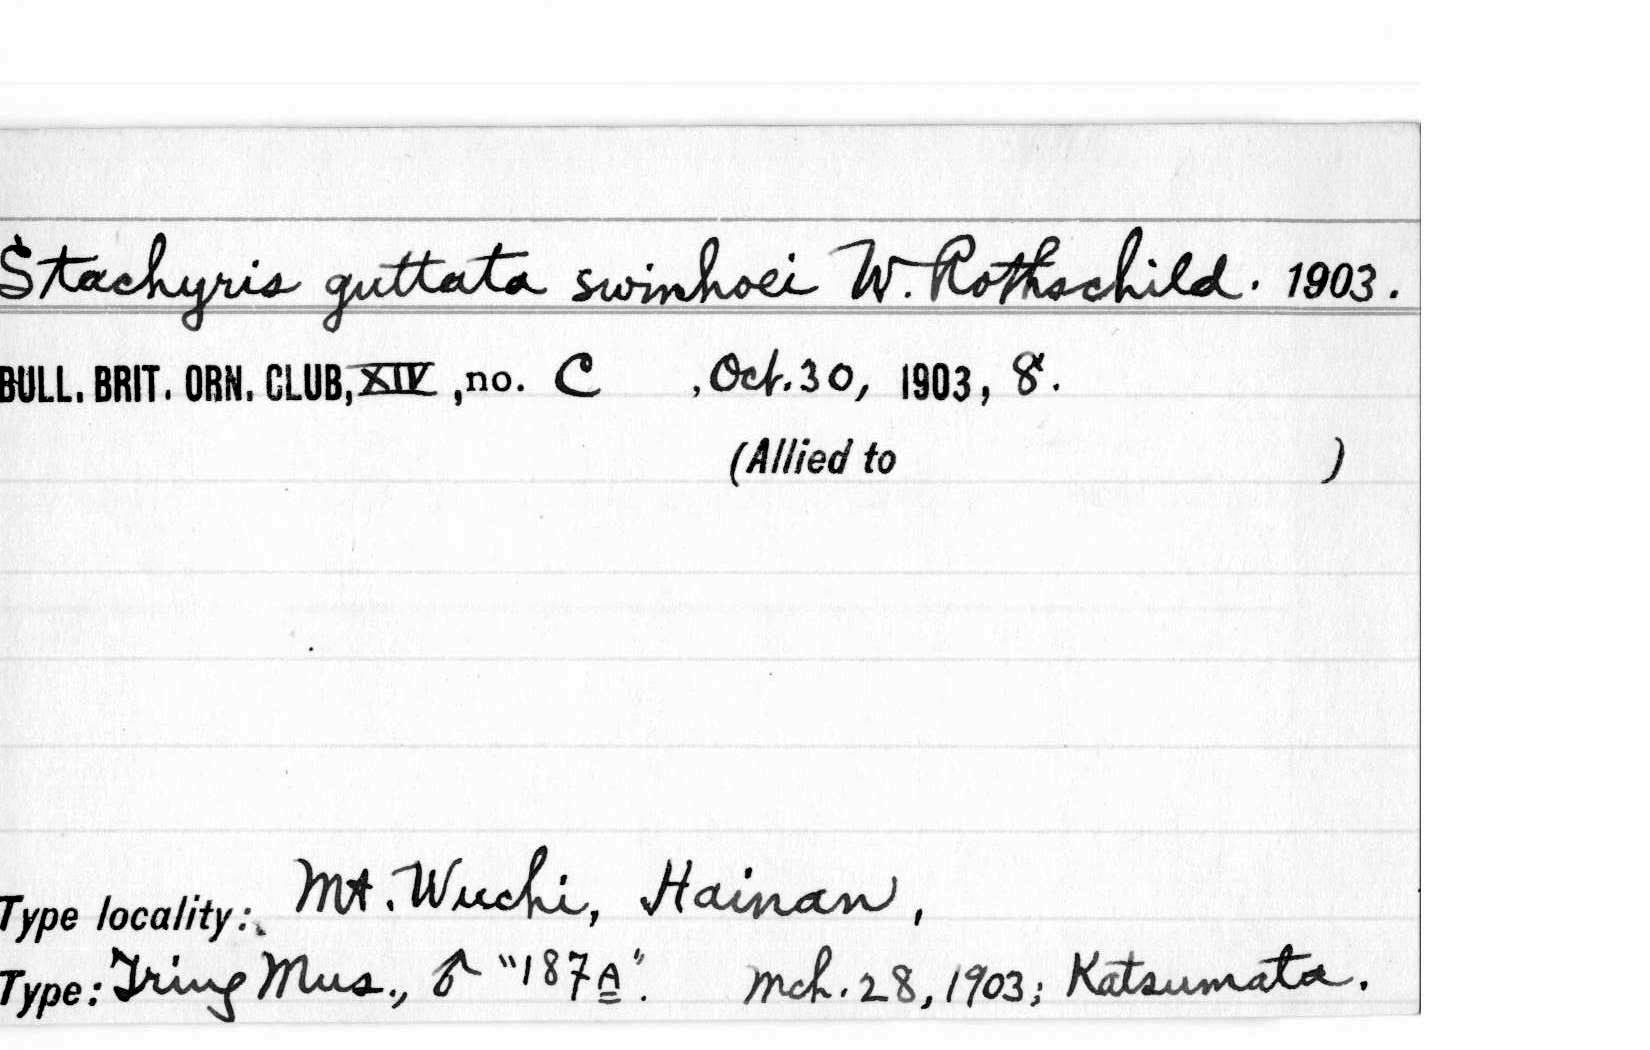 Stachyris guttata swinhoei W. Rothschild. 1903.
BULL. BRIT. ORN. CLUB, XIV, no. C , Oct. 30, 1903, 8.
(Allied to )
Type locality: Mt. Wuchi, Hainan,
Type: Tring Mus., ♂ "187A". Mch. 28, 1903; Katsumata.